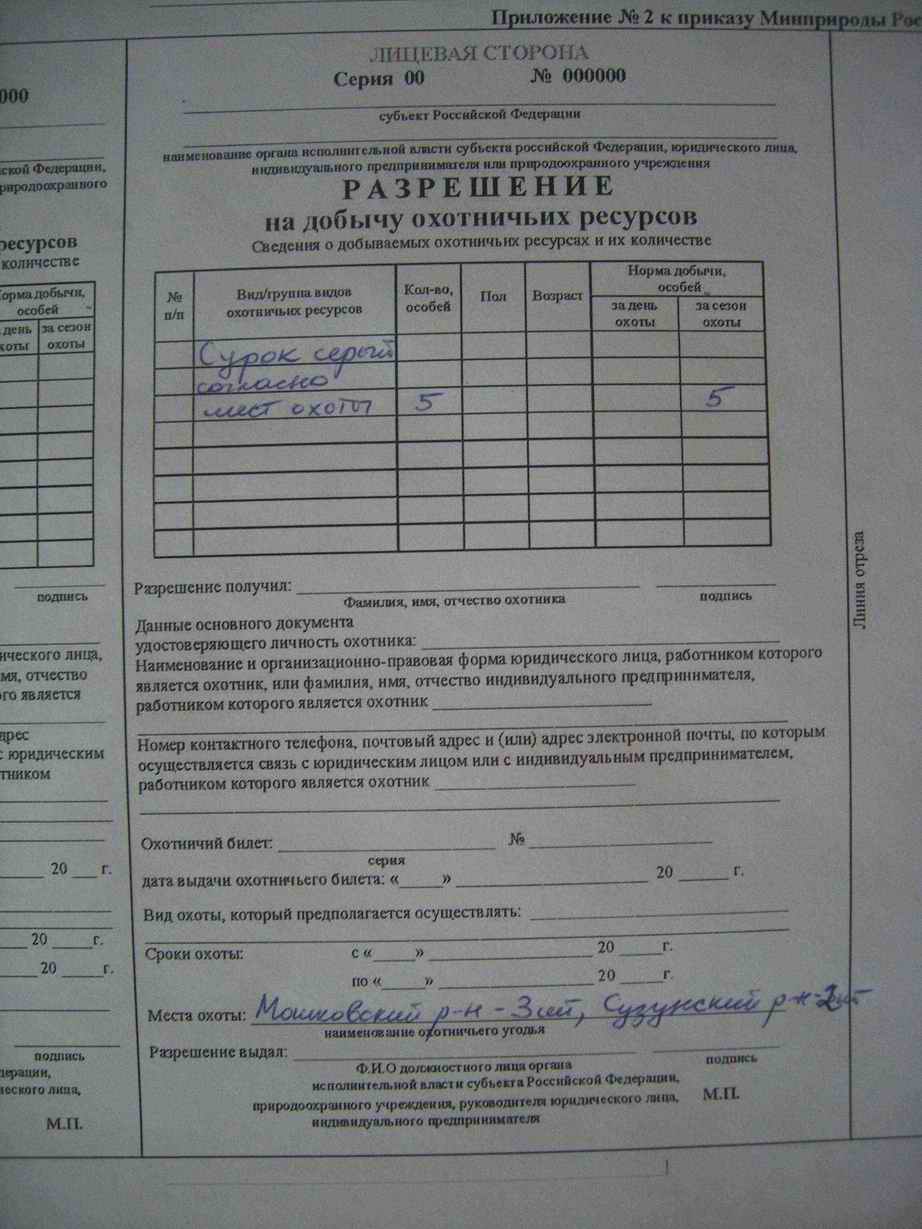 Приложение № 2 к приказу Минприроды Рос
ЛИЦЕВАЯ СТОРОНА
Серия 00 № 000000
субъект Российской Федерации
наименование органа исполнительной власти субъекта российской Федерации, юридического лица,
индивидуального предпринимателя или природоохранного учреждения
РАЗРЕШЕНИЕ
на добычу охотничьих ресурсов
Сведения о добываемых охотничьих ресурсах и их количестве
№ п/п
Вид/группа видов охотничьих ресурсов
Кол-во, особей
Пол
Возраст
Норма добычи, особей
за день охоты
за сезон охоты
Сурок серый
согласно
мест охоты 5 5
Разрешение получил:
Фамилия, имя, отчество охотника подпись
Данные основного документа
удостоверяющего личность охотника:
Наименование и организационно-правовая форма юридического лица, работником которого
является охотник, или фамилия, имя, отчество индивидуального предпринимателя,
работником которого является охотник
Номер контактного телефона, почтовый адрес и (или) адрес электронной почты, по которым
осуществляется связь с юридическим лицом или с индивидуальным предпринимателем,
работником которого является охотник
Охотничий билет: №
серия
дата выдачи охотничьего билета: « » 20 г.
Вид охоты, который предполагается осуществлять:
Сроки охоты: с « » 20 г.
по « » 20 г.
Места охоты: Мошковский р-н - 3 шт, Сузунский р-н - 2 шт
наименование охотничьего угодья
Разрешение выдал:
Ф.И.О должностного лица органа подпись
исполнительной власти субъекта Российской Федерации,
природоохранного учреждения, руководителя юридического лица, М.П.
индивидуального предпринимателя
Линия отреза
000
ской Федерации,
природоохранного
ресурсов
количестве
орма добычи,
особей
день охоты
за сезон охоты
подпись
ического лица,
мя, отчество
ого является
дрес
с юридическим
тником
20 г.
20 г.
20 г.
подпись
дерации,
ческого лица,
М.П.